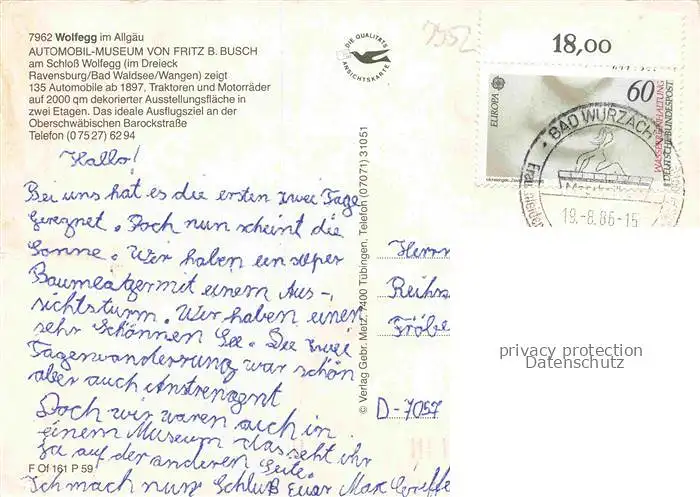 7962 Wolfegg im Allgäu
AUTOMOBIL-MUSEUM VON FRITZ B. BUSCH
am Schloß Wolfegg (im Dreieck
Ravensburg/Bad Waldsee/Wangen) zeigt
135 Automobile ab 1897, Traktoren und Motorräder
auf 2000 qm dekorierter Ausstellungsfläche in
zwei Etagen. Das ideale Ausflugsziel an der
Oberschwäbischen Barockstraße
Telefon (0 75 27) 62 94
Hallo!
Bei uns hat es die ersten zwei Tage
geregnet. Doch nun scheint die
Sonne. Wir haben ein super
mit einem Aus-
sichtsturm. Wir haben einen
sehr Schönnen See. Die zwei
Tagenwanderrung war schön
aber auch Anstrengent
Doch wir waren auch in
einem Museum das seht ihr
ja auf der anderen Seite.
Ich mach nun Schluß Euer Max
F Of 161 P 59
DIE QUALITÄTS
ANSICHTSKARTE
© Verlag Gebr. Metz, 7400 Tübingen, Telefon (07071) 31051
7952
18,00
EUROPA
60
WASSERREINHALTUNG
DEUTSCHE BUNDESPOST
BAD WURZACH
19.-8.86-15
Herrn
Reihs
Fröbe
D-7057
privacy protection
Datenschutz